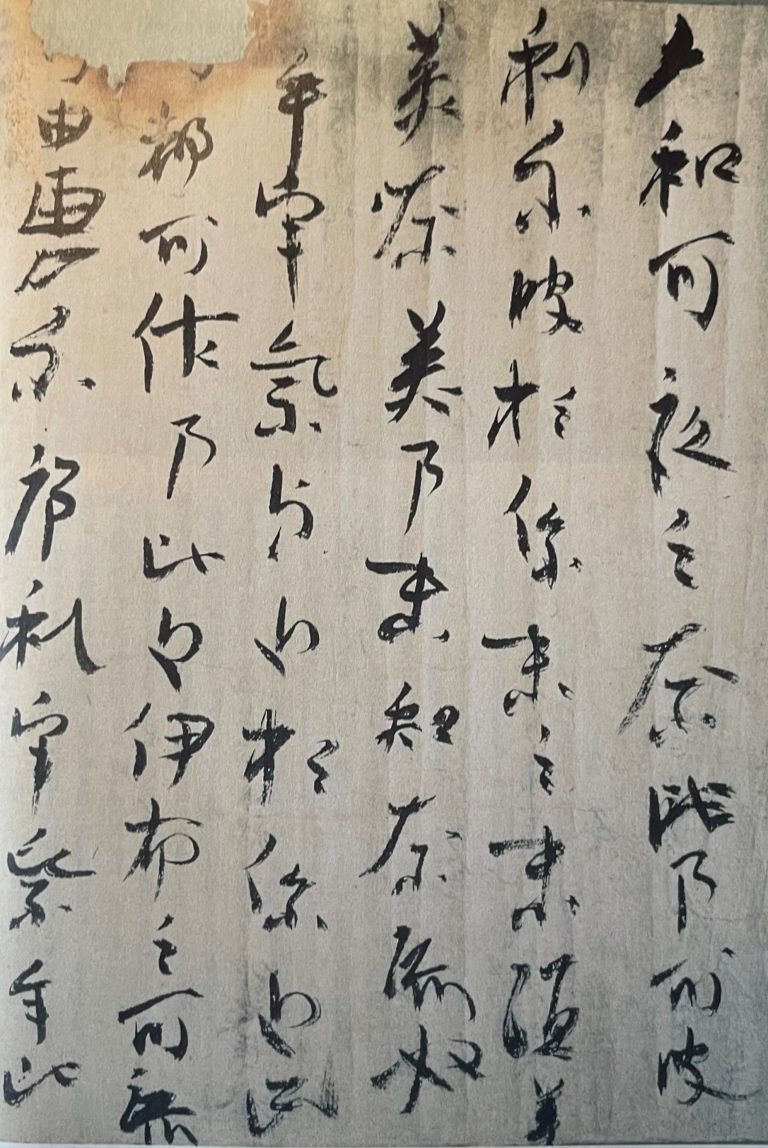 和可夜之奈比乃可波
利尓波於保末之末須
美奈美乃末知奈流奴
乎宇気与止於保止己
都可佐乃比止伊布之可流
由恵尓序礼宇気牟比